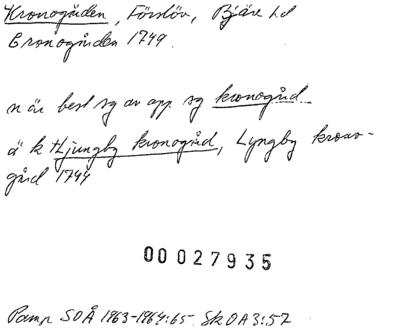 Kronogården, Förslöv, Bjäre hd
Cronogården 1749.
n är best sg av app. sg kronogård
å k Ljungby kronogård, Lyngby krono-
gård 1744
00 027935
Pamp SOÅ 1963-1964:65. SkOA3:57